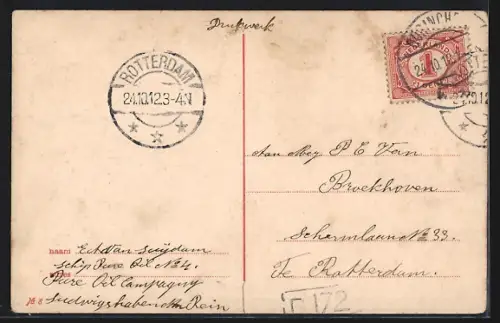 Drukwerk
ROTTERDAM
24.10.12.3-4.N
1
Aan Mej P E Van
Broekhoven
Schermlaan № 33.
Te Rotterdam.
naam Ed. Van Suijdam
Schip Pure Oil № 4.
Pure Oil Campagny
Ludwigshaben a/m Rein
T 172